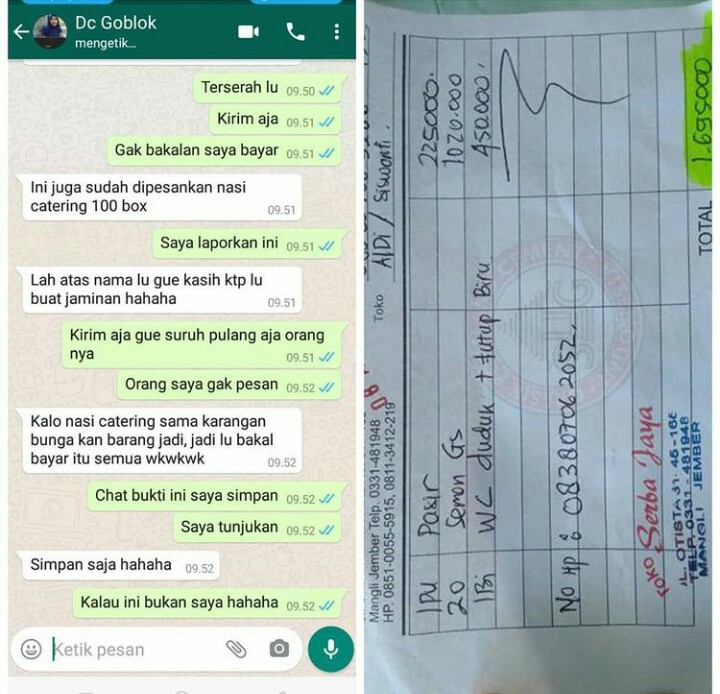 Dc Goblok
mengetik...
Terserah lu 09.50
Kirim aja 09.51
Gak bakalan saya bayar 09.51
Ini juga sudah dipesankan nasi
catering 100 box 09.51
Saya laporkan ini 09.51
Lah atas nama lu gue kasih ktp lu
buat jaminan hahaha 09.51
Kirim aja gue suruh pulang aja orang
nya 09.51
Orang saya gak pesan 09.52
Kalo nasi catering sama karangan
bunga kan barang jadi, jadi lu bakal
bayar itu semua wkwkwk 09.52
Chat bukti ini saya simpan 09.52
Saya tunjukan 09.52
Simpan saja hahaha 09.52
Kalau ini bukan saya hahaha 09.52
Ketik pesan
Mangli Jember Telp. 0331-481948
HP. 0851-0055-5915, 0811-3412-219
Toko AlDi / Siswanti.
1PU Pasir 225000.
20 Semen GS 1020.000
1Bi WC duduk + tutup Biru 450.000.
No HP : 083807062052.
TOKO Serba Jaya
JL. OTISTA 31. 45-166
TELP. 0331 - 481948
MANGLI JEMBER
TOTAL 1.695000